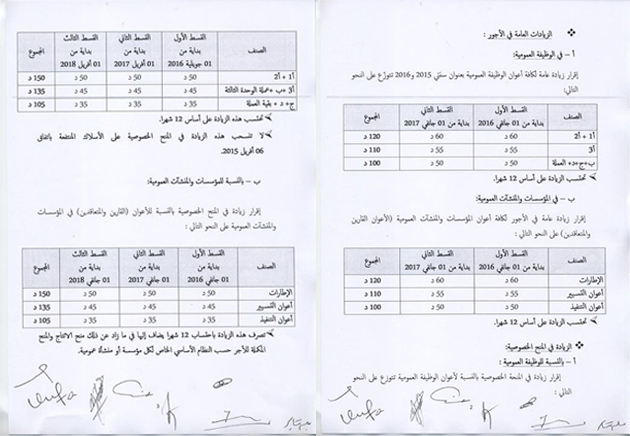 ❖ الزيادات العامة في الأجور :
أ – في الوظيفة العمومية:
إقرار زيادة عامة لكافة أعوان الوظيفة العمومية بعنوان سنتي 2015 و2016 تتوزّع على النحو
التالي:
الصنف القسط الأول بداية من 01 جانفي 2016 القسط الثاني بداية من 01 جانفي 2017 المجموع
أ1 + أ2 60 د 60 د 120
أ3 55 د 55 د 110
ب+ج+د+ العملة 50 د 50 د 100
➢ تحتسب الزيادة على أساس 12 شهرا.
ب – في المؤسسات والمنشآت العمومية:
إقرار زيادة عامة في الأجور لكافة أعوان المؤسسات والمنشآت العمومية (الأعوان القارين
والمتعاقدين) على النحو التالي :
الصنف القسط الأول بداية من 01 جانفي 2016 القسط الثاني بداية من 01 جانفي 2017 المجموع
الإطارات 60 د 60 د 120 د
أعوان التسيير 55 د 55 د 110 د
أعوان التنفيذ 50 د 50 د 100 د
➢ تحتسب الزيادة على أساس 12 شهرا.
❖ الزيادة في المنح الخصوصية:
أ – بالنسبة للوظيفة العمومية :
إقرار زيادة في المنحة الخصوصية بالنسبة لأعوان الوظيفة العمومية تتوزع على النحو
التالي :
2
الصنف القسط الأول بداية من 01 جويلية 2016 القسط الثاني بداية من 01 أفريل 2017 القسط الثالث بداية من 01 أفريل 2018 المجموع
أ1 + أ2 50 د 50 د 50 د 150 د
أ3 +ب +عملة الوحدة الثالثة 45 د 45 د 45 د 135 د
ج+ د + بقية العملة 35 د 35 د 35 د 105 د
➢ تحتسب هذه الزيادة على أساس 12 شهرا.
➢ لا تنسحب هذه الزيادة في المنح الخصوصية على الأسلاك المنتفعة باتفاق
06 أفريل 2015.
ب – بالنسبة للمؤسسات والمنشآت العمومية:
إقرار زيادة في المنح الخصوصية بالنسبة للأعوان (القارين والمتعاقدين) في المؤسسات
والمنشآت العمومية على النحو التالي :
الصنف القسط الأول بداية من 01 جانفي 2016 القسط الثاني بداية من 01 جانفي 2017 القسط الثالث بداية من 01 جانفي 2018 المجموع
الإطارات 50 د 50 د 50 د 150 د
أعوان التسيير 45 د 45 د 45 د 135 د
أعوان التنفيذ 35 د 35 د 35 د 105 د
➢ تصرف هذه الزيادة باحتساب 12 شهرا يضاف إليها في ما زاد عن ذلك منح الانتاج والمنح
المكملة للأجر حسب النظام الأساسي الخاص لكل مؤسسة أو منشأة عمومية.
3